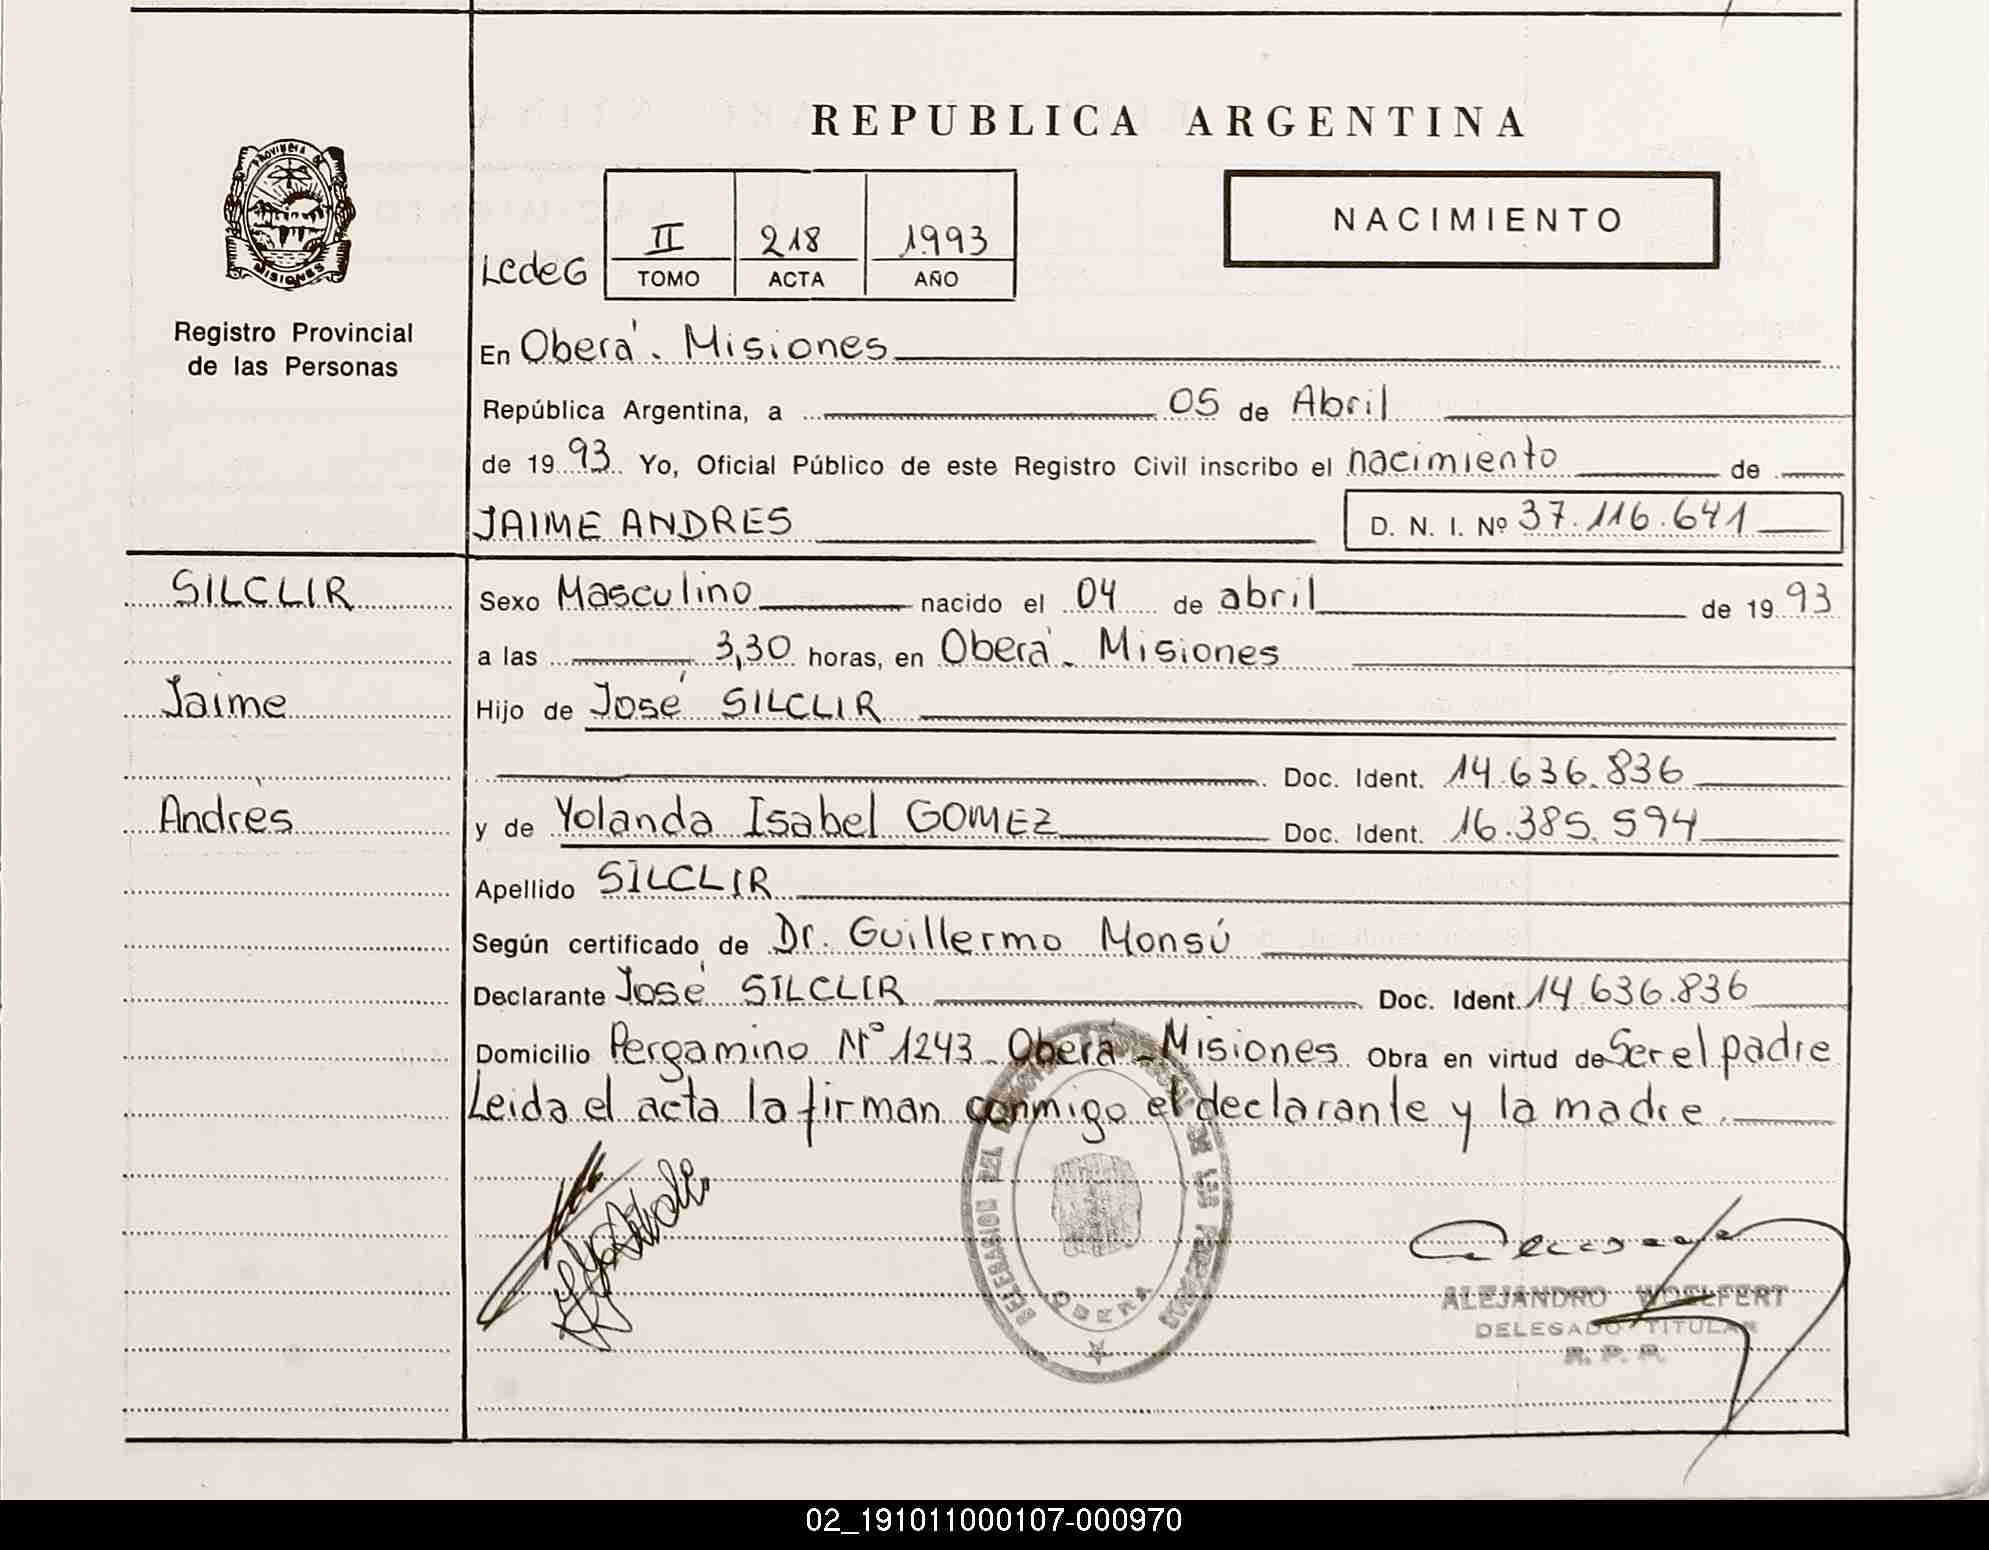 REPUBLICA ARGENTINA
PROVINCIA DE
MISIONES
Registro Provincial
de las Personas
NACIMIENTO
LcdeG
II 218 1993
TOMO ACTA AÑO
En Oberá - Misiones
República Argentina, a 05 de Abril
de 19 93 Yo, Oficial Público de este Registro Civil inscribo el nacimiento de
JAIME ANDRES D. N. I. Nº 37.116.641
SILCLIR
Jaime
Andrés
Sexo Masculino nacido el 04 de abril de 19 93
a las 3,30 horas, en Oberá - Misiones
Hijo de José SILCLIR
Doc. Ident. 14.636.836
y de Yolanda Isabel GOMEZ Doc. Ident. 16.385.594
Apellido SILCLIR
Según certificado de Dr. Guillermo Monsú
Declarante José SILCLIR Doc. Ident. 14.636.836
Domicilio Pergamino Nº 1243 - Oberá - Misiones Obra en virtud de Ser el padre
Leida el acta la firman conmigo el declarante y la madre.
DE LAS
OBERA
ALEJANDRO WOELFERT
DELEGADO TITULAR
R. P. P.
02_191011000107-000970